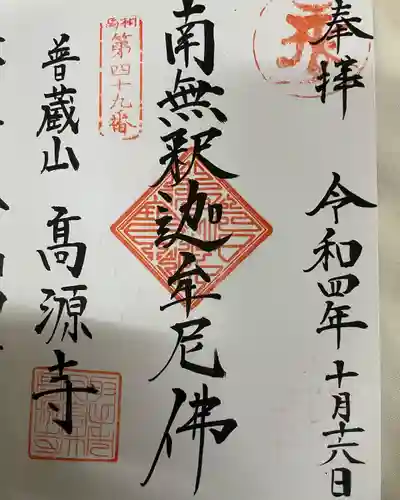 奉拝
令和四年十月十六日
南無釈迦牟尼佛
相馬
第四十九番
普蔵山
高源寺